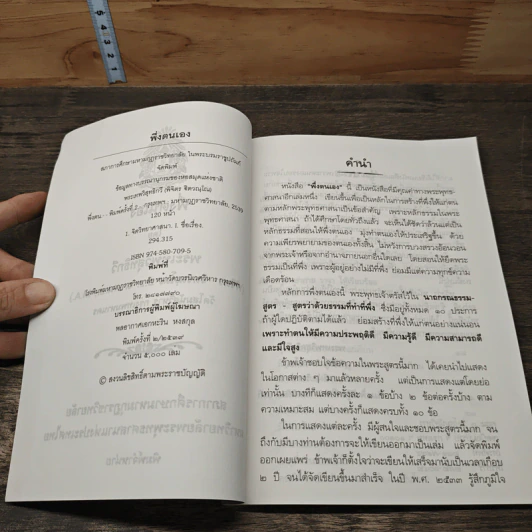 พึ่งตนเอง
สภาการศึกษามหามกุฏราชวิทยาลัย ในพระบรมราชูปถัมภ์
จัดพิมพ์
ข้อมูลทางบรรณานุกรมของหอสมุดแห่งชาติ
พระเทพวิสุทธิกวี (พิจิตร ฐิตวณฺโณ)
พึ่งตน. - พิมพ์ครั้งที่ 2. - กรุงเทพฯ : มหามกุฏราชวิทยาลัย, 2539
120 หน้า
1. จิตวิทยาศาสนา. I. ชื่อเรื่อง
294.315
ISBN 974-580-709-5
พิมพ์ที่
โรงพิมพ์มหามกุฏราชวิทยาลัย หน้าวัดบวรนิเวศวิหาร กรุงเทพฯ
โทร.
บรรณาธิการผู้พิมพ์ผู้โฆษณา
พลอากาศเอกหะริน หงสกุล
พิมพ์ครั้งที่ ๒/๒๕๓๙
จำนวน ๕,๐๐๐ เล่ม
© สงวนลิขสิทธิ์ตามพระราชบัญญัติ
คำนำ
หนังสือ "พึ่งตนเอง" นี้ เป็นหนังสือที่มีคุณค่าทางพระพุทธ-
ศาสนาอีกเล่มหนึ่ง เขียนขึ้นเพื่อเป็นหลักในการสร้างที่พึ่งให้แก่ตน
ตามหลักพระพุทธศาสนาเป็นข้อสำคัญ เพราะหลักธรรมในพระ
พุทธศาสนา ถ้าได้ศึกษาโดยทั่วถึงแล้ว จะเห็นได้ชัดว่าล้วนแต่เป็น
หลักธรรมที่สอนให้พึ่งตนเอง มุ่งทำตนเองให้ประเสริฐขึ้น ด้วย
ความเพียรพยายามของตนเองทั้งสิ้น ไม่หวังการบวงสรวงอ้อนวอน
จากพระเจ้าหรือจากอำนาจภายนอกอื่นใดเลย โดยสอนให้ยึดพระ
ธรรมเป็นที่พึ่ง เพราะผู้อยู่อย่างไม่มีที่พึ่ง ย่อมมีแต่ความทุกข์ความ
เดือดร้อน
หลักการพึ่งตนเองนี้ พระพุทธเจ้าตรัสไว้ใน นาถกรณธรรม-
สูตร - สูตรว่าด้วยธรรมที่ทำที่พึ่ง ซึ่งมีอยู่ทั้งหมด ๑๐ ประการ
ถ้าผู้ใดปฏิบัติตามได้แล้ว ย่อมสร้างที่พึ่งให้แก่ตนอย่างแน่นอน
เพราะทำตนให้มีความประพฤติดี มีความรู้ดี มีความสามารถดี
และมีใจสูง
ข้าพเจ้าชอบใจข้อความในพระสูตรนี้มาก ได้เคยนำไปแสดง
ในโอกาสต่าง ๆ มาแล้วหลายครั้ง แต่เป็นการแสดงแต่โดยย่อ
เท่านั้น บางทีก็แสดงครั้งละ ๑ ข้อบ้าง ๒ ข้อต่อครั้งบ้าง ตาม
ความเหมาะสม แต่บางครั้งก็แสดงครบทั้ง ๑๐ ข้อ
ในการแสดงแต่ละครั้ง มีผู้สนใจและชอบพระสูตรนี้มาก จน
ถึงกับมีบางท่านต้องการจะให้เขียนออกมาเป็นเล่ม แล้วจัดพิมพ์
ออกเผยแพร่ ข้าพเจ้าก็ตั้งใจว่าจะเขียนให้เสร็จมานับเป็นเวลาเกือบ
๒ ปี จนได้จัดเขียนขึ้นมาสำเร็จ ในปี พ.ศ. ๒๕๓๓ รู้สึกภูมิใจ
5 4 3 2 1